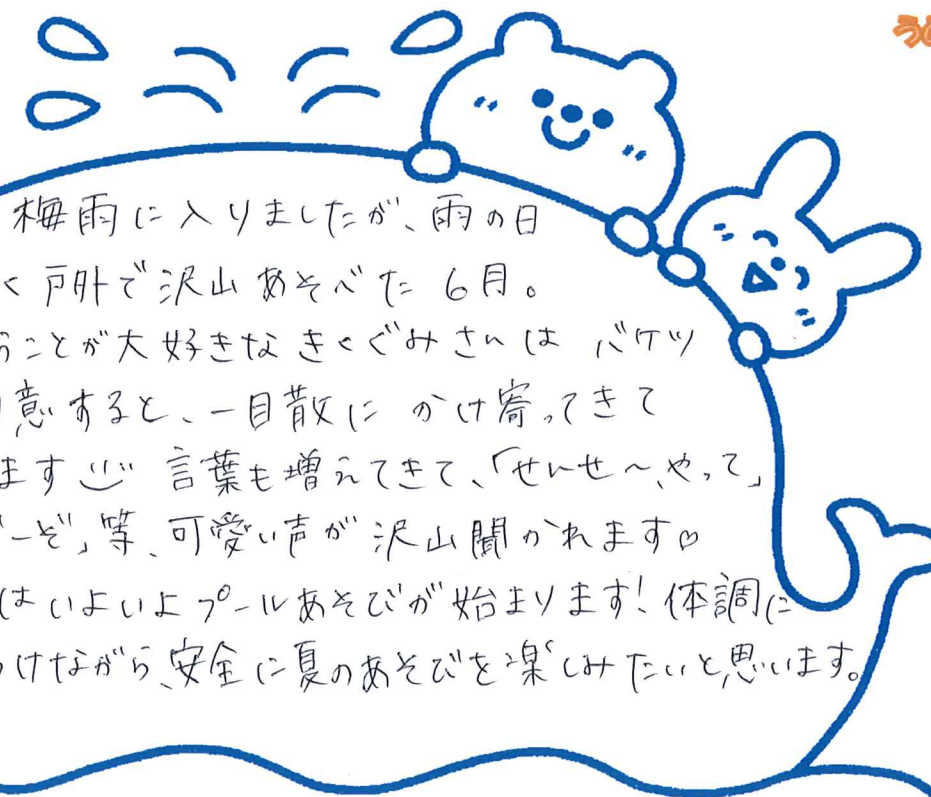 う
梅雨に入りましたが、雨の日
く戸外で沢山あそべた6月。
うことが大好きなきくぐみさんは バケツ
意すると、一目散に かけ寄ってきて
ます 言葉も増えてきて、「せんせ〜、やって」
ーぞ」等、可愛い声が沢山聞かれます♡
はいよいよプールあそびが始まります!体調に
つけながら、安全に夏のあそびを楽しみたいと思います。